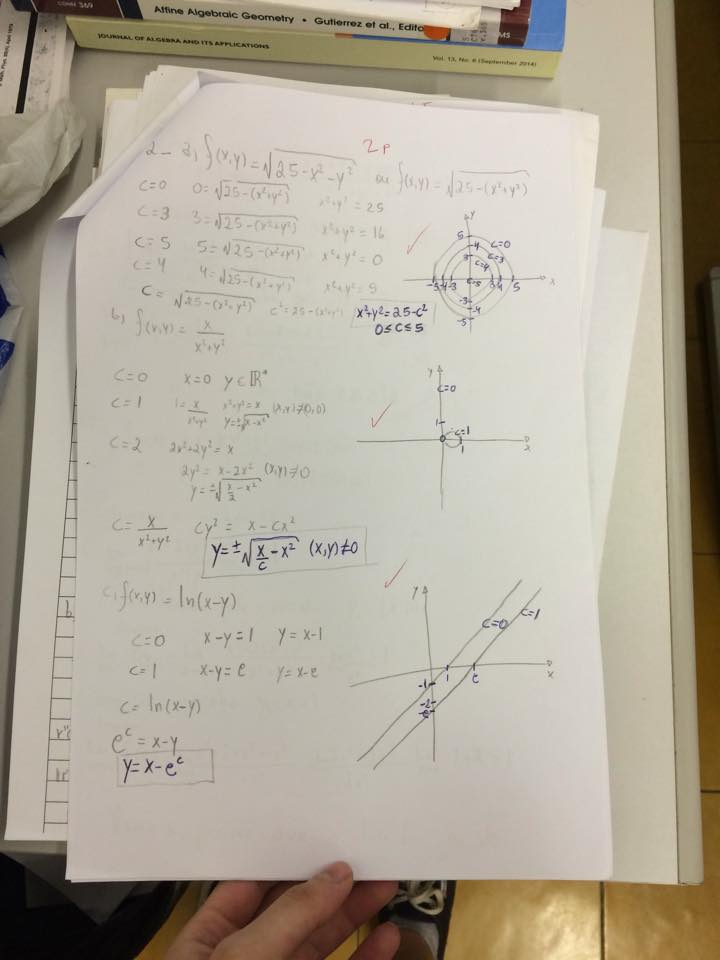 CONN 369
Affine Algebraic Geometry • Gutierrez et al., Edito
MS
JOURNAL OF ALGEBRA AND ITS APPLICATIONS
Vol. 13, No. 6 (September 2014)
2p
2- a) f(x,y)=√25-x²-y² ou f(x,y)=√25-(x²+y²)
c=0 0=√25-(x²+y²) x²+y²=25
c=3 3=√25-(x²+y²) x²+y²=16
c=5 5=√25-(x²+y²) x²+y²=0
c=4 4=√25-(x²+y²) x²+y²=9
c=√25-(x²+y²) c²=25-(x²+y²) x²+y²=25-c²
0≤c≤5
y
5
4
3
c=0
c=3
c=4
c=5
-5 -4 -3 3 4 5 x
-3
-4
-5
b) f(x,y)= x/x²+y²
c=0 x=0 y∈ℝ*
c=1 1=x/x²+y² x²+y²=x (x,y)≠(0,0)
y=±√x-x²
c=2 2x²+2y²=x
2y²=x-2x² (x,y)≠0
y=±√x/2-x²
c=x/x²+y² cy²=x-cx²
y=±√x/c-x² (x,y)≠0
y
c=0
1
c=1
1
x
c) f(x,y)=ln(x-y)
c=0 x-y=1 y=x-1
c=1 x-y=e y=x-e
c=ln(x-y)
e^c=x-y
y=x-e^c
y
c=0
c=1
1 e x
-1
-2
-e